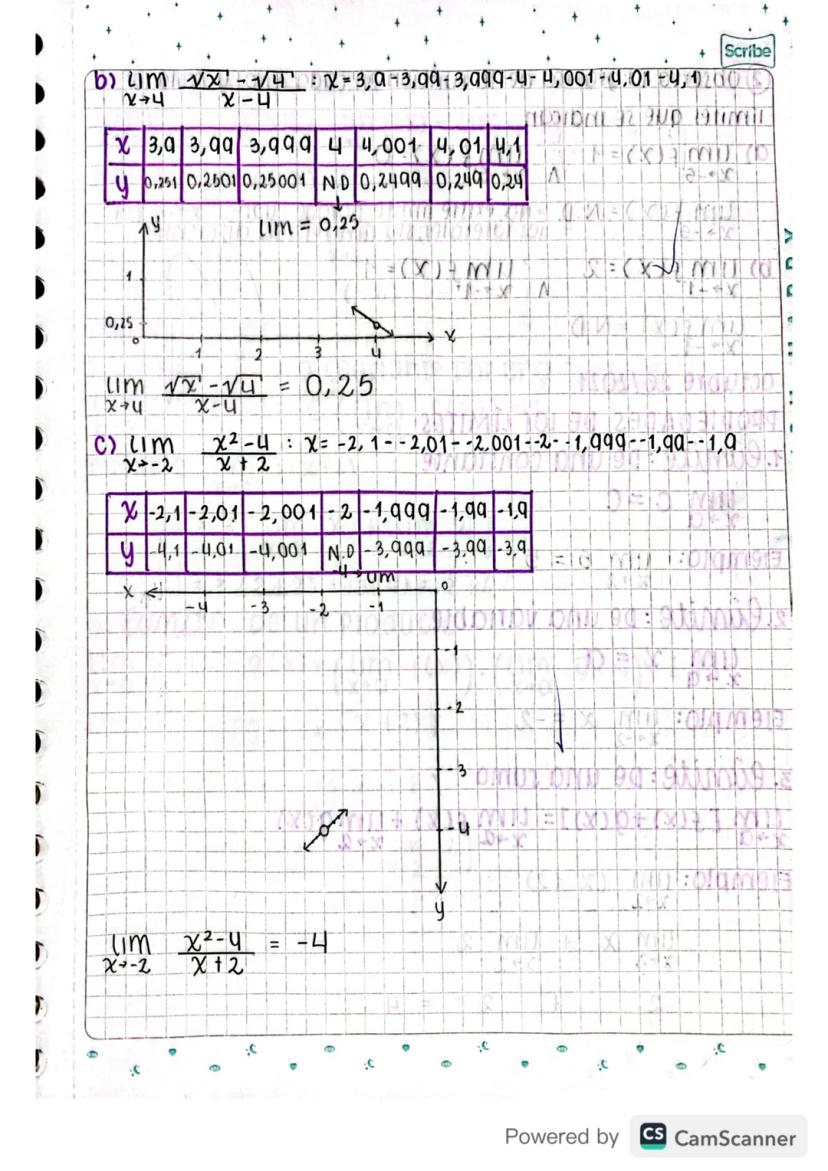 Scribe
b) lim √x - √4 / x-4 : x = 3,9 - 3,99 - 3,999 - 4 - 4,001 - 4,01 - 4,1
x→4
x 3,9 3,99 3,999 4 4,001 4,01 4,1
y 0,251 0,2501 0,25001 N.D 0,2499 0,249 0,24
lim = 0,25
y
1
0,25
0
x
1 2 3 4
lim √x - √4 / x-4 = 0,25
x→4
c) lim x²-4 / x+2 : x = -2,1 - -2,01 - -2,001 - -2 - -1,999 - -1,99 - -1,9
x→-2
x -2,1 -2,01 -2,001 -2 -1,999 -1,99 -1,9
y -4,1 -4,01 -4,001 N.D -3,999 -3,99 -3,9
-4 → lim
x
0
-4 -3 -2 -1
-1
-2
-3
-4
y
lim x²-4 / x+2 = -4
x→-2
Powered by CS CamScanner